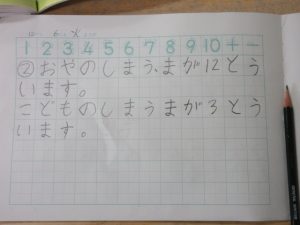 12 6 水
1 2 3 4 5 6 7 8 9 10 + −
②おやのしまうまが12とう
います。
こどものしまうまが3とう
います。